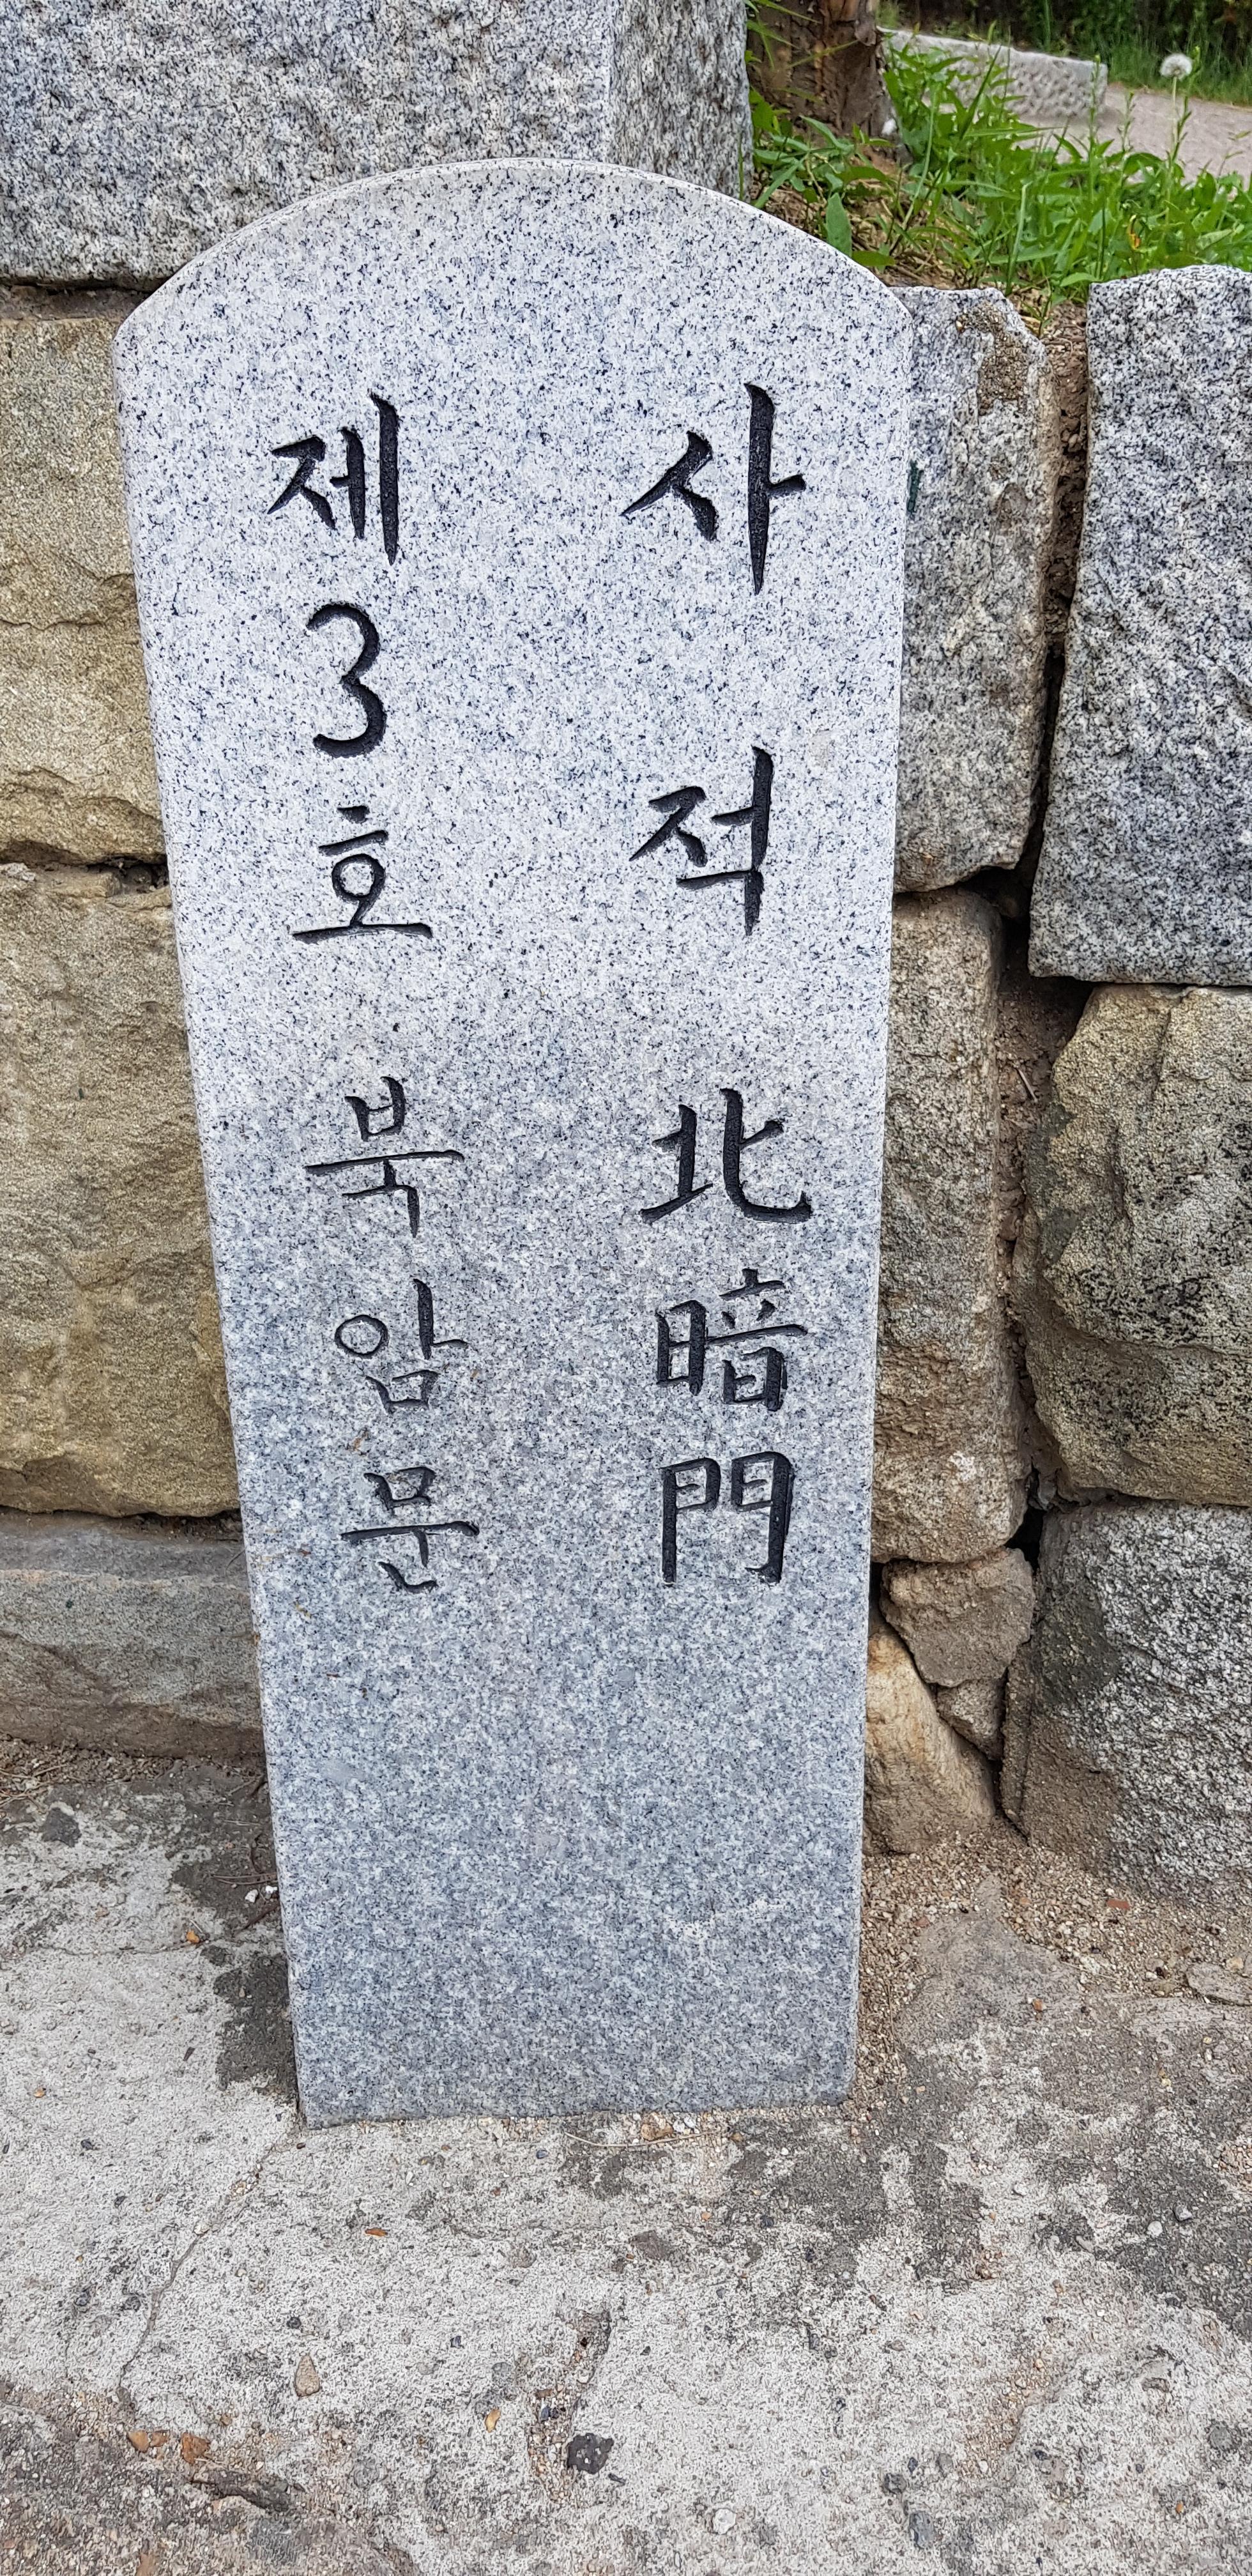 사적 北暗門
제3호 북암문